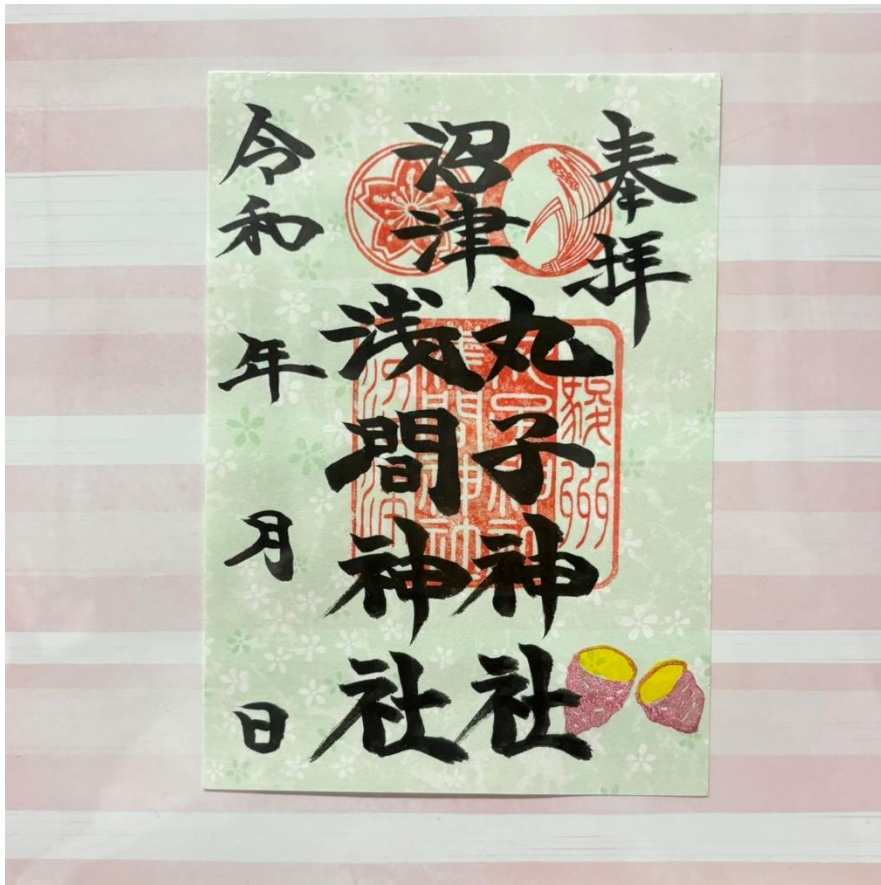 奉拝
沼津
丸子神社
浅間神社
令和 年 月 日
駿州